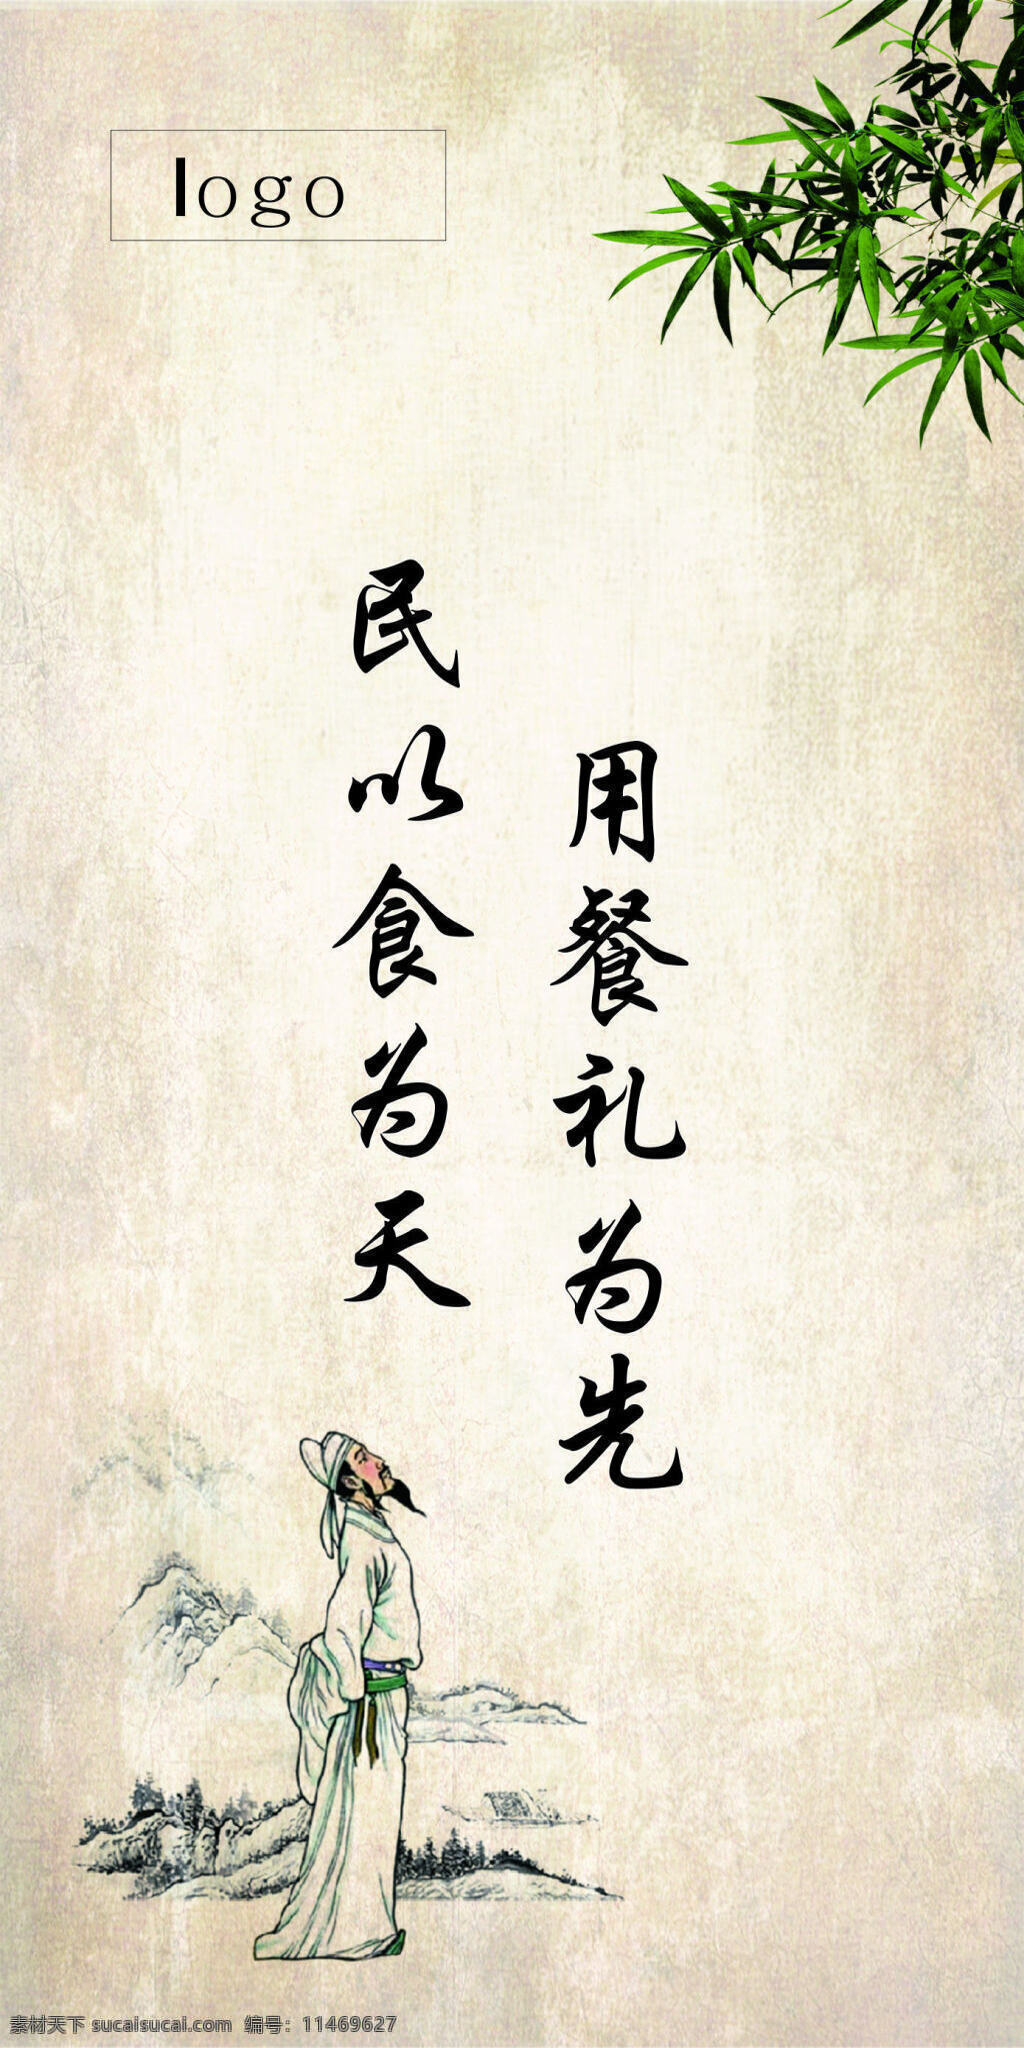 logo
民以食为天
用餐礼为先
素材天下 sucaisucai.com 编号：11469627